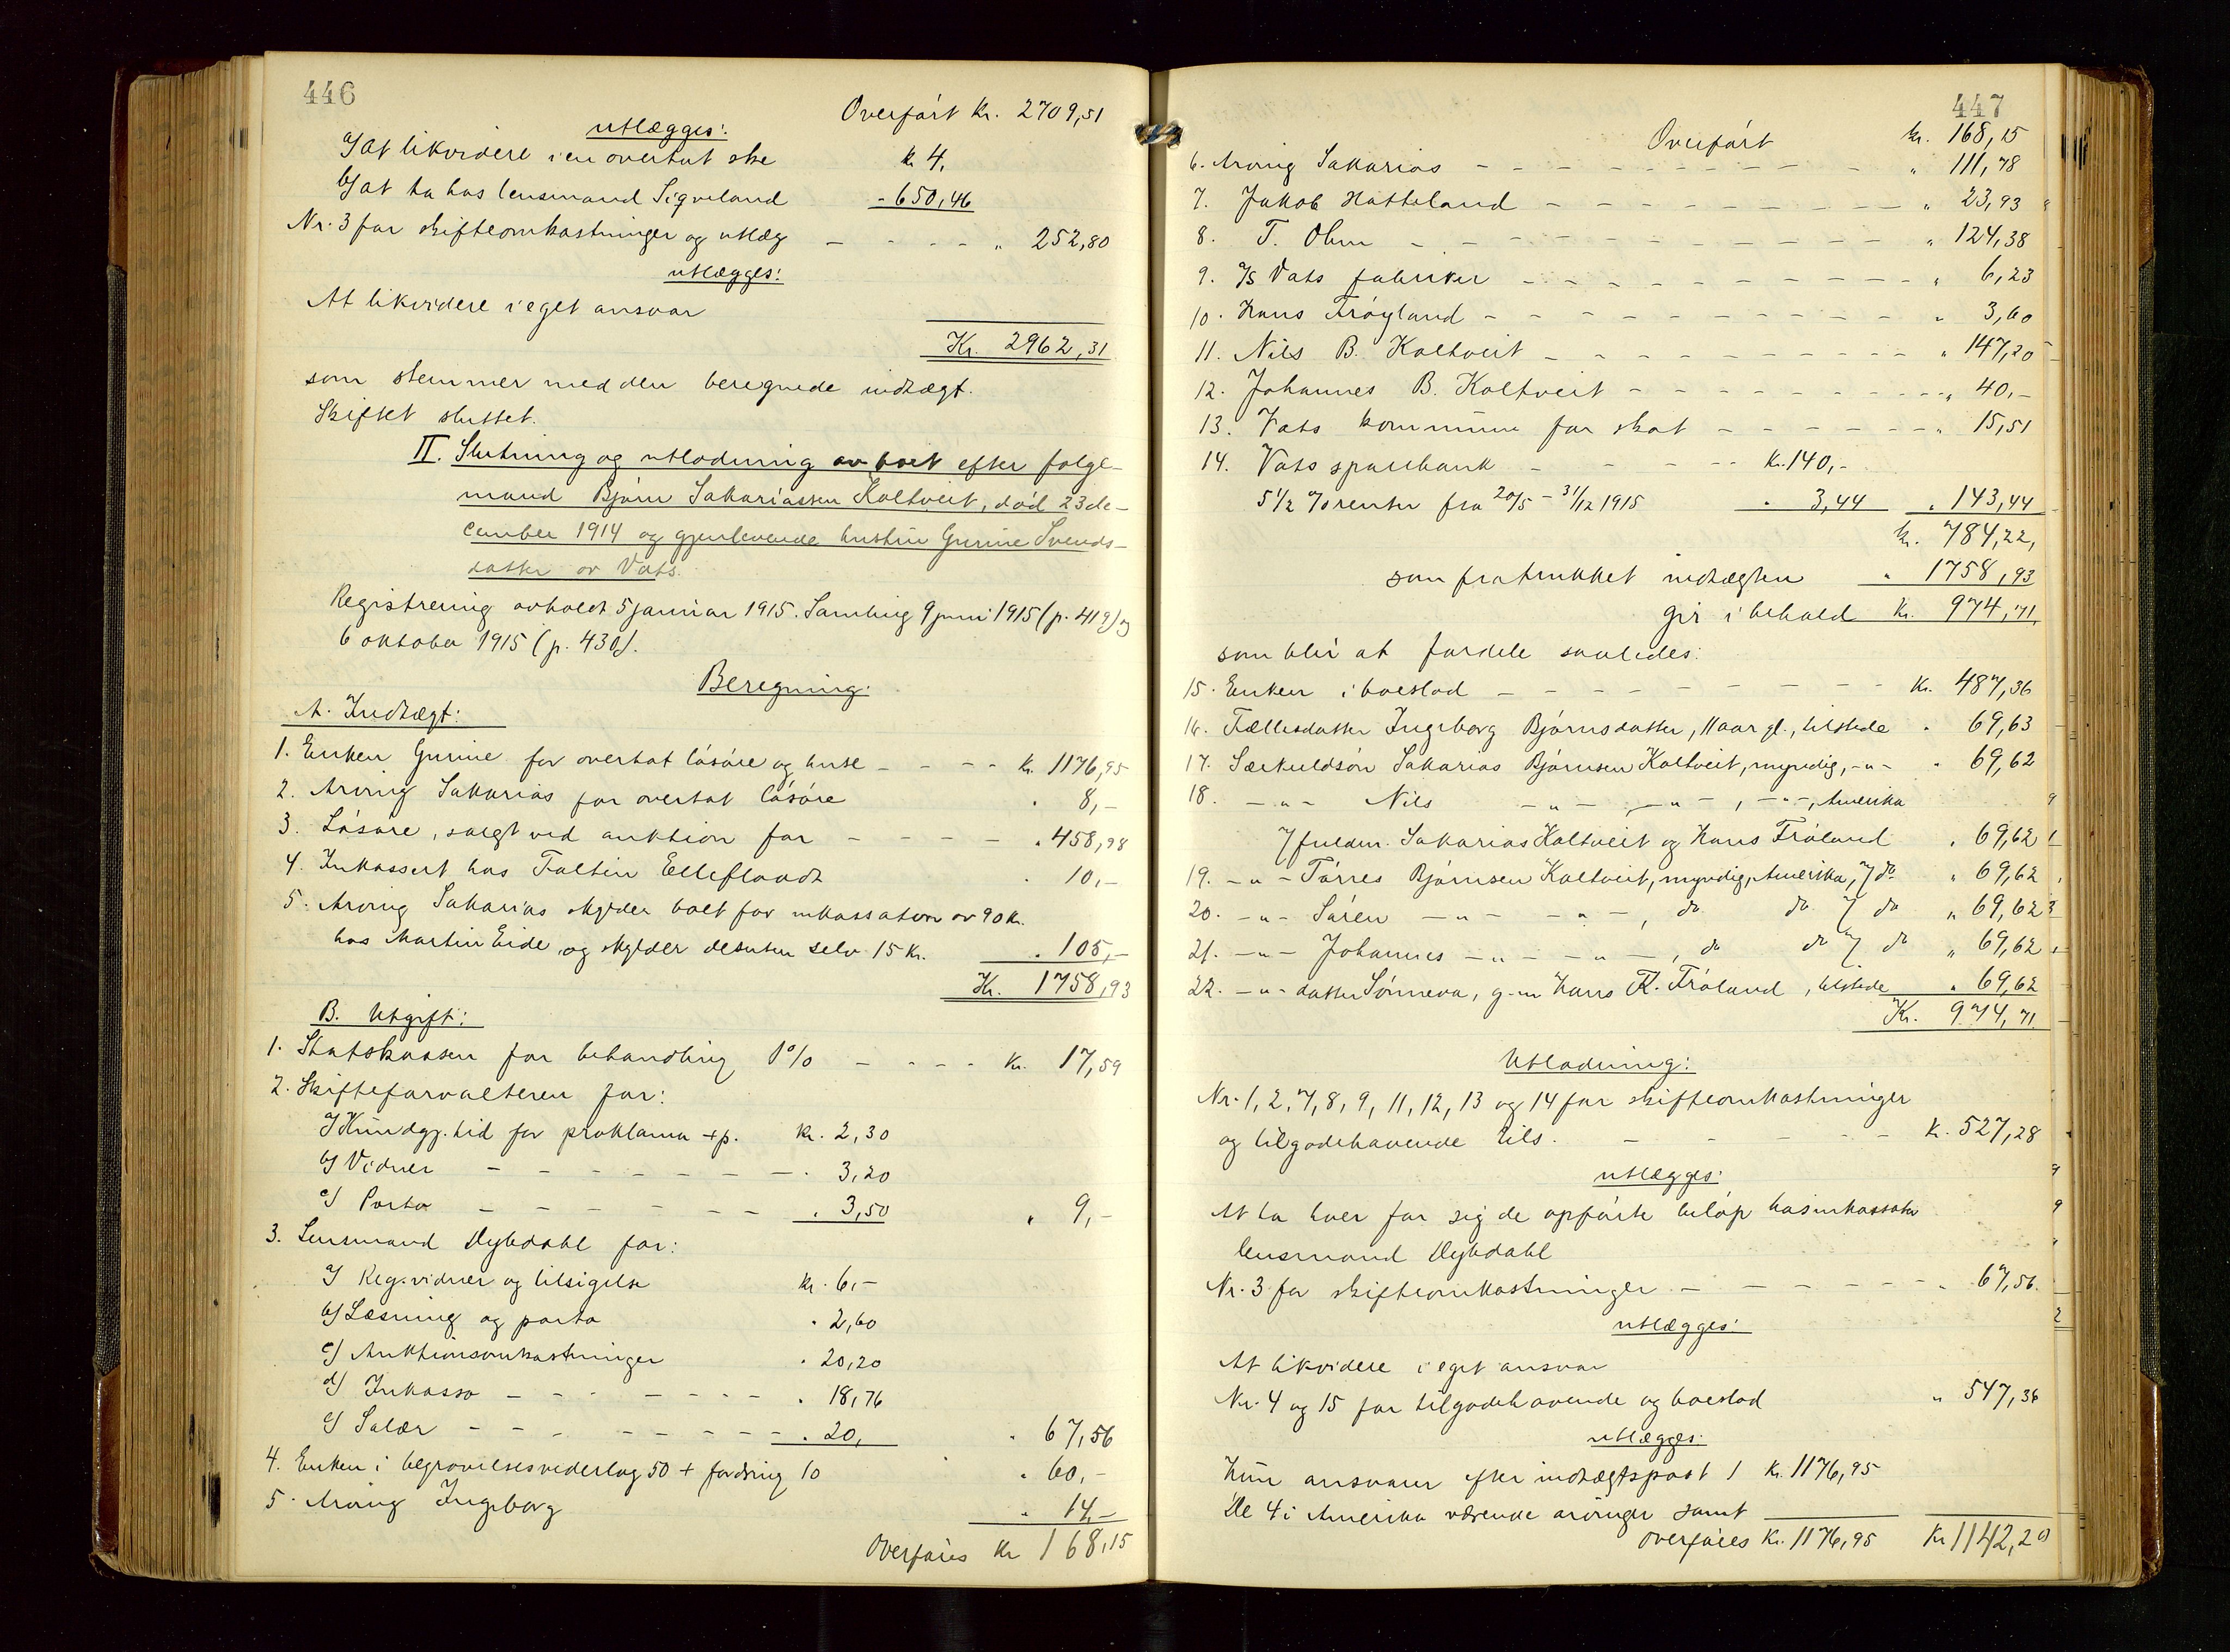 446
Overført Kr. 2709,51
utlægges:
a) at likvidere i en overtat ske kr 4,
b) at ta hos lensmand Sigveland - 650,46
Nr. 3 for skifteomkostninger og utlæg - - - - " 252,80
utlægges:
At likvidere i eget ansvar
Kr. 2962,31
som stemmer med den beregnede indtægt.
Skiftet sluttet.
II. Slutning og utlodning av boet efter folge-
mand Bjørn Sakariassen Koltveit, død 23 de-
cember 1914 og gjenlevende hustru Gurine Svends-
datter av Vats.
Registrering avholdt 5 januar 1915. Samling 9 juni 1915 (p. 419) og
6 oktober 1915 (p. 430).
Beregning:
A. Indtægt:
1. Enken Gurine for overtat løsøre og huse - - - - kr. 1176,95
2. Arving Sakarias for overtat løsøre " 8,-
3. Løsøre, solgt ved auktion for - - - - " 458,98
4. Inkassert hos Faltin Elleflaadt " 10,-
5. Arving Sakarias skylder boet for inkassation av 90 kr.
hos Martin Eide, og skylder desuten selv 15 kr. " 105,-
Kr. 1758,93
B. Utgift:
1. Statskassen for behandling 1% - - - - kr. 17,59
2. Skifteforvalteren for:
a) Kundgj.tid for proklama + p. kr. 2,30
b) Vidner - - - - - - - " 3,20
c) Porto - - - - - - - " 3,50 " 9,-
3. Lensmand Dybdahl for:
a) Reg.vidner og tilsigelse kr. 6,-
b) Læsning og porto " 2,60
c) Auktionsomkostninger " 20,20
d) Inkasso - - - - - - - " 18,76
e) Salær - - - - - - - - " 20, " 67,56
4. Enken i begravelsesvederlag 50 + fordring 10 " 60,-
5. Arving Ingeborg " 14,-
Overføres kr 168,15
447
Overført kr. 168,15
6. Arving Sakarias - - - - - - - - - " 111,78
7. Jakob Hatteland - - - - - - - - - " 23,93
8. T. Ohm - - - - - - - - - - - " 124,38
9. A/S Vats fabriker - - - - - - - - - " 6,23
10. Hans Frøyland - - - - - - - - - " 3,60
11. Nils B. Koltveit - - - - - - - - - " 147,20
12. Johannes B. Koltveit - - - - - - - - " 40,-
13. Vats kommune for skat - - - - - - " 15,51
14. Vats sparebank - - - - - kr. 140,-
5 1/2 % renter fra 20/5 - 31/12 1915 " 3,44 " 143,44
kr. 784,22,
som fratrukket indtægten " 1758,93
gir i behold kr. 974,71,
som blir at fordele saaledes:
15. Enken i boeslod - - - - - - - - - kr. 487,36
16. Fællesdatter Ingeborg Bjørnsdatter, 11 aar gl., tilstede " 69,63
17. Særkuldsøn Sakarias Bjørnsen Koltveit, myndig, -"- " 69,62
18. -"- Nils -"- -"- , -"-, Amerika
v/ fuldm. Sakarias Koltveit og Hans Frøland " 69,62
19. -"- Tørres Bjørnsen Koltveit, myndig, Amerika, v/ do " 69,62
20. -"- Søren -"- -"- , do do v/ do " 69,62
21. -"- Johannes -"- -"- , do do v/ do " 69,62
22. -"- datter Sønneva, g. m. Hans K. Frøland, tilstede " 69,62
Kr. 974,71
Utlodning:
Nr. 1, 2, 7, 8, 9, 11, 12, 13 og 14 for skifteomkostninger
og tilgodehavende tils. - - - - - - kr. 527,28
utlægges:
At ta hver for sig de opførte beløp hos inkassator
lensmand Dybdahl
Nr. 3 for skifteomkostninger - - - - - - " 67,56
utlægges:
At likvidere i eget ansvar
Nr. 4 og 15 for tilgodehavende og boeslod " 547,36
utlægges:
Hun ansvarer efter indtægtspost 1 kr. 1176,95
De 4 i Amerika værende arvinger samt
Overføres kr. 1176,95 Kr 1142,20